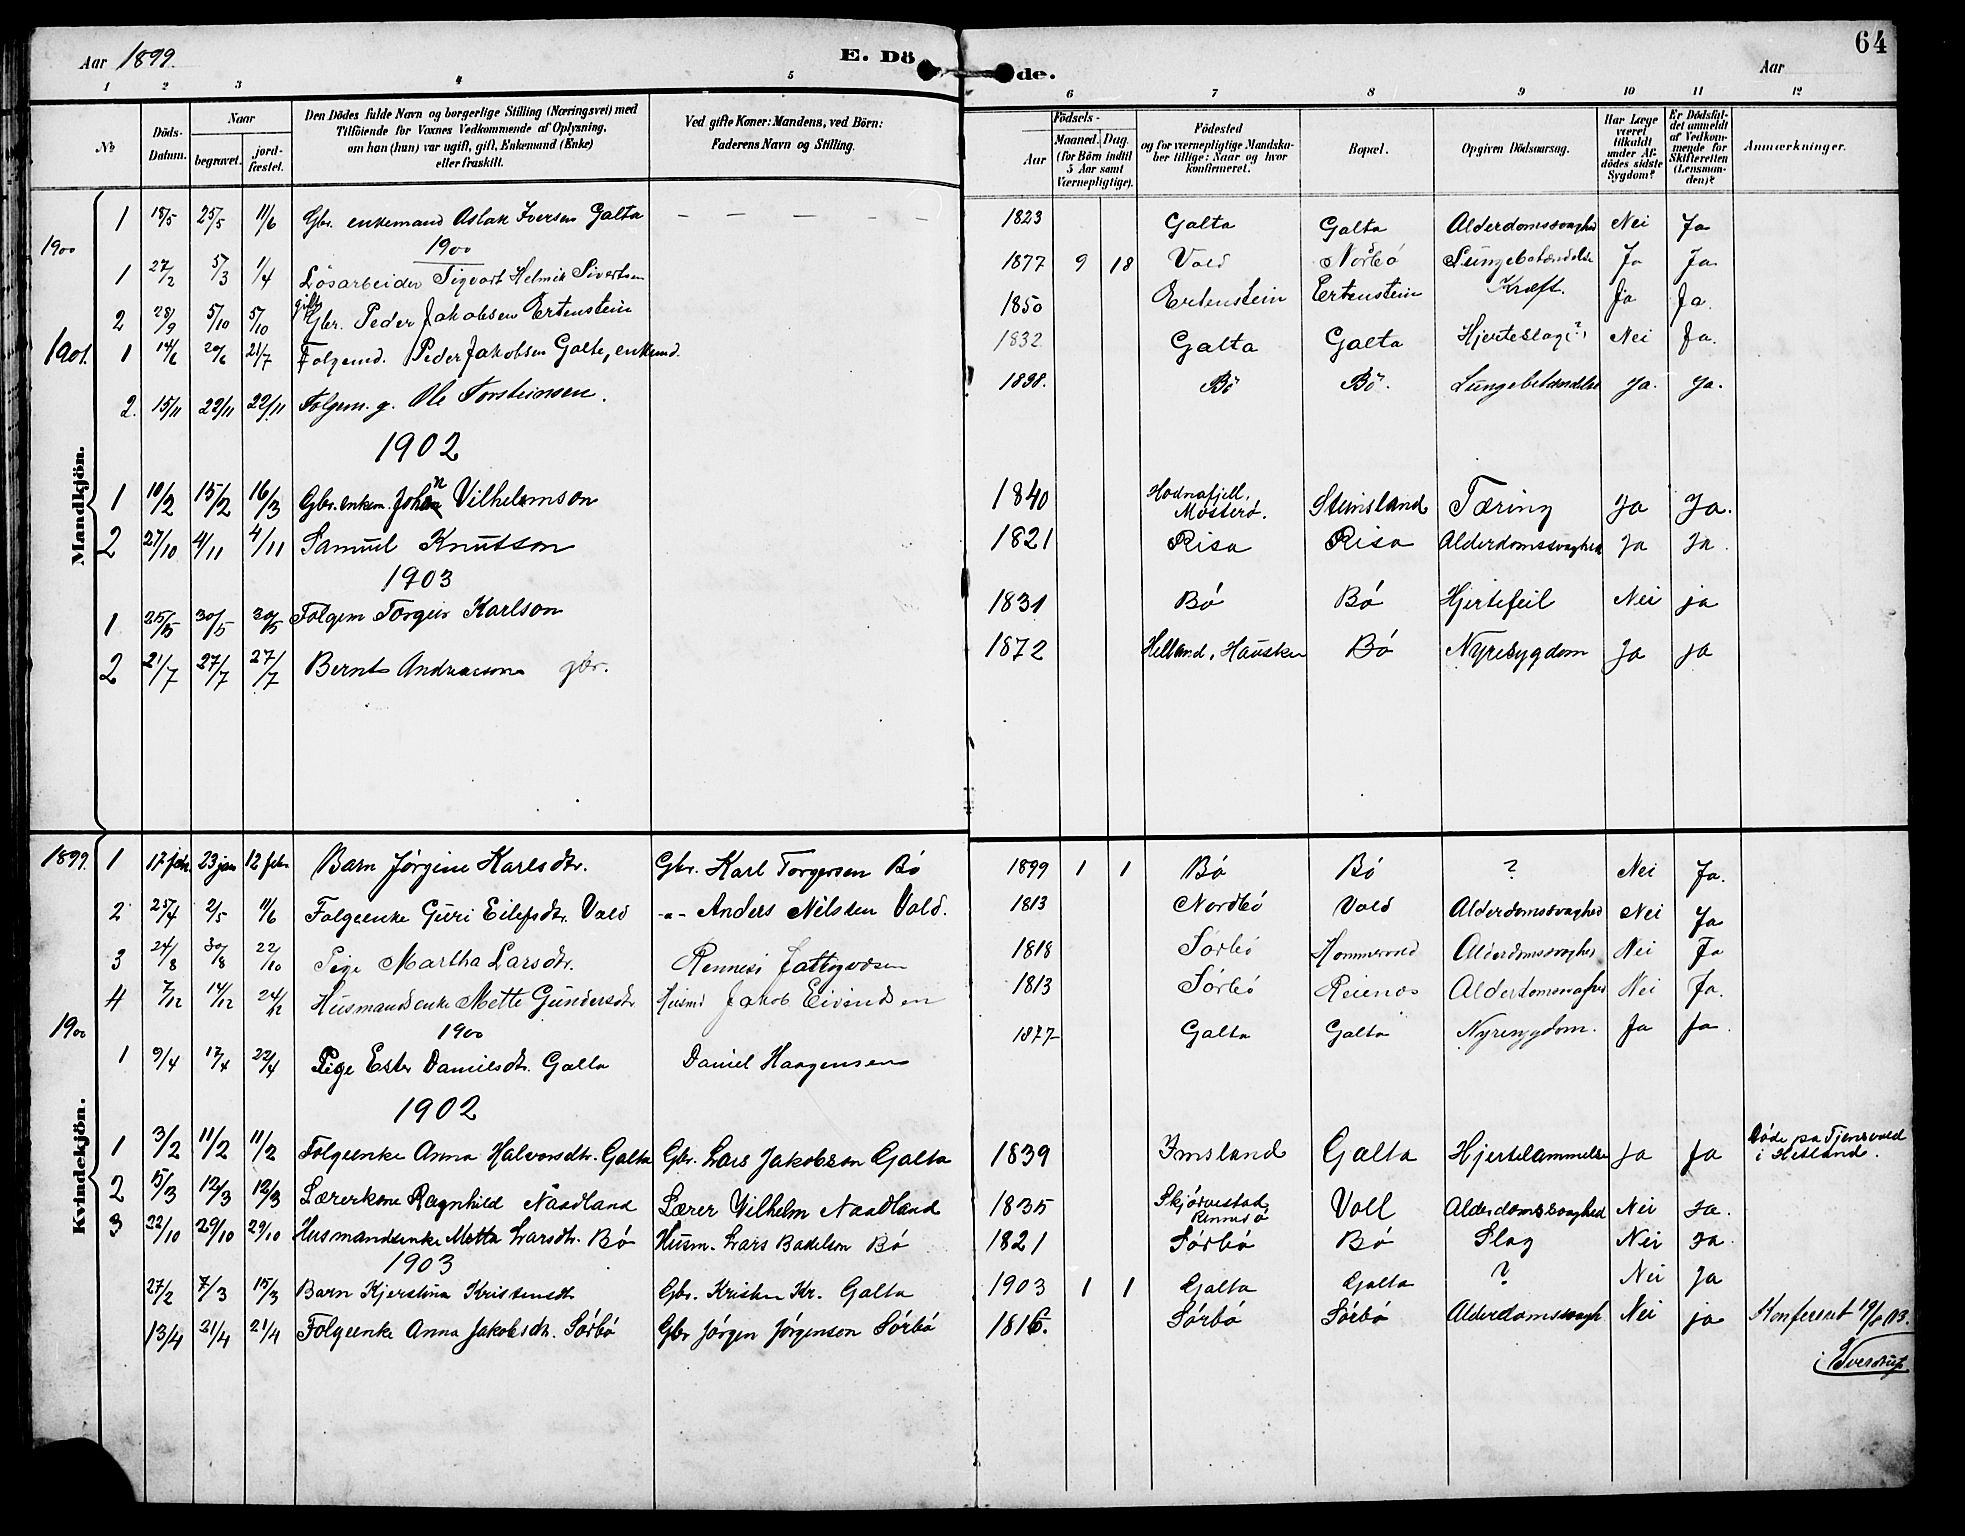 Aar 1899. E. Dö de. Aar 64
1 2 3 4 5 6 7 8 9 10 11 12
№ Döds-Datum. Naar begravet. jord-fæstet. Den Dödes fulde Navn og borgerlige Stilling (Næringsvei) med Tilföiende for Voxnes Vedkommende af Oplysning, om han (hun) var ugift, gift, Enkemand (Enke) eller fraskilt. Ved gifte Koner: Mandens, ved Börn: Faderens Navn og Stilling. Födsels- Aar Maaned. Dag. (for Börn indtil 5 Aar samt Værnepligtige). Födested og for værnepligtige Mandskaber tillige: Naar og hvor konfirmeret. Bopæl. Opgiven Dödsaarsag. Har Læge været tilkaldt under Afdödes sidste Sygdom? Er Dödsfaldet anmeldt af Vedkommende for Skifteretten (Lensmanden)? Anmærkninger.
Mandkjön.
1 18/5 25/5 11/6 Gbr. enkemand Aslak Iversen Galta — — — — — 1823 Galta Galta Alderdomssvaghed Nei Ja
1900 1900
1 27/2 5/3 1/4 Lösarbeider Sigvart Helmik Sivertsen 1877 9 18 Vold Nordbö Lungebetændelse Ja Ja
2 28/9 5/10 5/10 gift Gbr. Peder Jakobsen Ertenstein 1850 Ertenstein Ertenstein Kræft. Ja Ja.
1901. 1 14/6 20/6 21/7 Folgemd. Peder Jakobsen Galta, enkemd. 1832 Galta Galta Hjerteslag(?) Nei Ja.
2. 15/11 22/11 22/11 Folgem. g. Ole Torsteinsen. 1838. Bö Bö. Lungebetændelse Ja. Ja.
1902
1 10/2 15/2 16/3 Gbr. enkem. Johan Vilhelmson 1840 Hodnafjell, Mosterö. Steinsland Tæring Ja Ja.
2 27/10 4/11 4/11 Samuel Knutson 1821 Risa Risa Alderdomssvaghed Ja Ja.
1903
1 25/5 30/5 30/5 Folgem Torgeir Karlson 1831 Bö Bö Hjertefeil Nei ja
2 21/7 27/7 27/7 Bernt Andreasson gbr. 1872 Helland, Hausken Bö Nyresygdom Ja ja
Kvindekjön.
1899 1 17 feb. 23 jan 12 febr Barn Jørgine Karlsdtr. Gbr. Karl Torgersen Bö 1899 1 1 Bö Bö ? Nei Ja.
2 25/4 2/5 11/6 Folgeenke Guri Eilefsdtr. Vold -"- Anders Nilsen Vold. 1813 Nordbö Vold Alderdomssvaghed Nei Ja
3 24/8 30/8 22/10 Pige Martha Larsdtr. Rennesö Fattigvæsen 1818 Sørbö Hommervold Alderdomssvaghed Nei Ja
4 7/12 14/12 24/12 Husmandsenke Mette Gundersdtr Husmd Jakob Eivindsen 1813 Sørbö Reienæs Nei Ja.
1900 1900
1 9/4 17/4 22/4 Pige Ester Danielsdtr. Galta Daniel Haagensen 1877 Galta Galta Nyresygdom. Ja Ja.
1902
1 3/2 11/2 11/2 Folgeenke Anna Halvorsdtr. Galta Gbr. Lars Jakobson Galta 1839 Imsland Galta Hjertelammelse Ja Ja Döde paa Tjensvold i Hetland.
2 5/3 12/3 12/3 Lærerkone Ragnhild Naadland Lærer Vilhelm Naadland 1835 Skjörvestad, Rennesö Voll Alderdomssvaghed Nei Ja.
3 22/10 29/10 29/10 Husmandsenke Metta Larsdtr. Bö Husm. Lars Bö 1821 Sörbö Bö Slag Nei Ja
1903
27/2 7/3 15/3 Barn Kjerstina Kristensdtr Gbr. Kristen Kr. Galta 1903 1 1 Galta Galta ? Nei Ja
13/4 21/4 21/4 Folgeenke Anna Jakobsdtr. Sörbö Gbr Jörgen Jörgenson Sörbö 1816. Sörbö Sörbö Alderdomssvagh Nei ja Konfereret